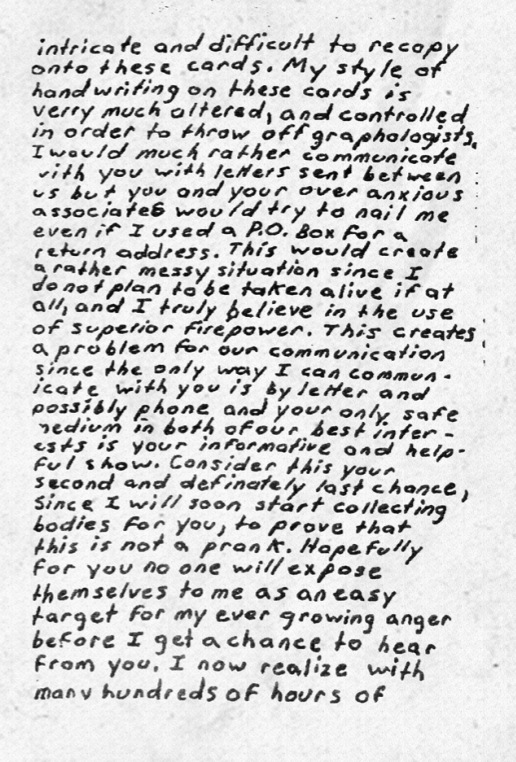 intricate and difficult to recopy
onto these cards. My style of
handwriting on these cards is
verry much altered, and controlled
in order to throw off graphologists.
I would much rather communicate
with you with letters sent between
us but you and your over anxious
associates would try to nail me
even if I used a P.O. Box for a
return address. This would create
a rather messy situation since I
do not plan to be taken alive if at
all, and I truly believe in the use
of superior firepower. This creates
a problem for our communication
since the only way I can commun-
icate with you is by letter and
possibly phone and your only safe
medium in both of our best inter-
ests is your informative and help-
ful show. Consider this your
second and definately last chance,
Since I will soon start collecting
bodies for you, to prove that
this is not a prank. Hopefully
for you no one will expose
themselves to me as an easy
target for my ever growing anger
before I get a chance to hear
from you. I now realize with
many hundreds of hours of